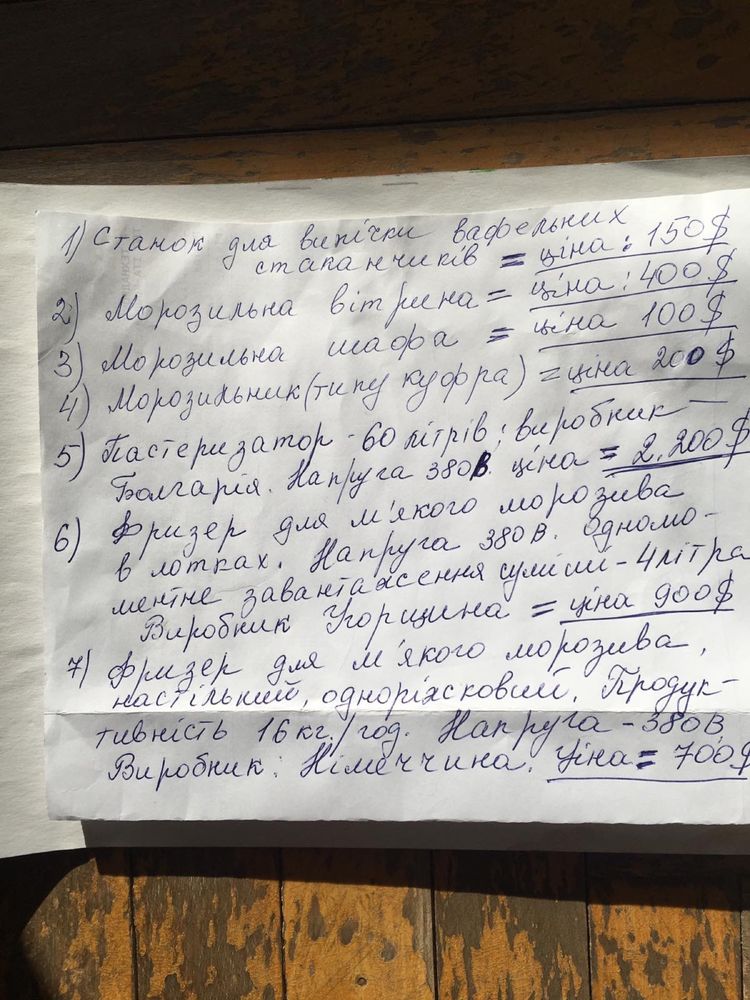 1) Станок для випічки вафельних
стаканчиків = ціна: 150$
2) Морозильна вітрина = ціна: 400$
3) Морозильна шафа = ціна 100$
4) Морозильник (типу куфра) = ціна 200$
5) Пастеризатор - 60 літрів; виробник -
Болгарія. Напруга 380В. ціна = 2.200$
6) Фризер для м'якого морозива
в лотках. Напруга 380 В. Одномо-
ментне завантаження суміші - 4 літра
Виробник Угорщина = ціна 900$
7) Фризер для м'якого морозива,
настільний, одноріжковий. Продук-
тивність 16 кг./год. Напруга - 380 В
Виробник: Німеччина. Ціна = 700$